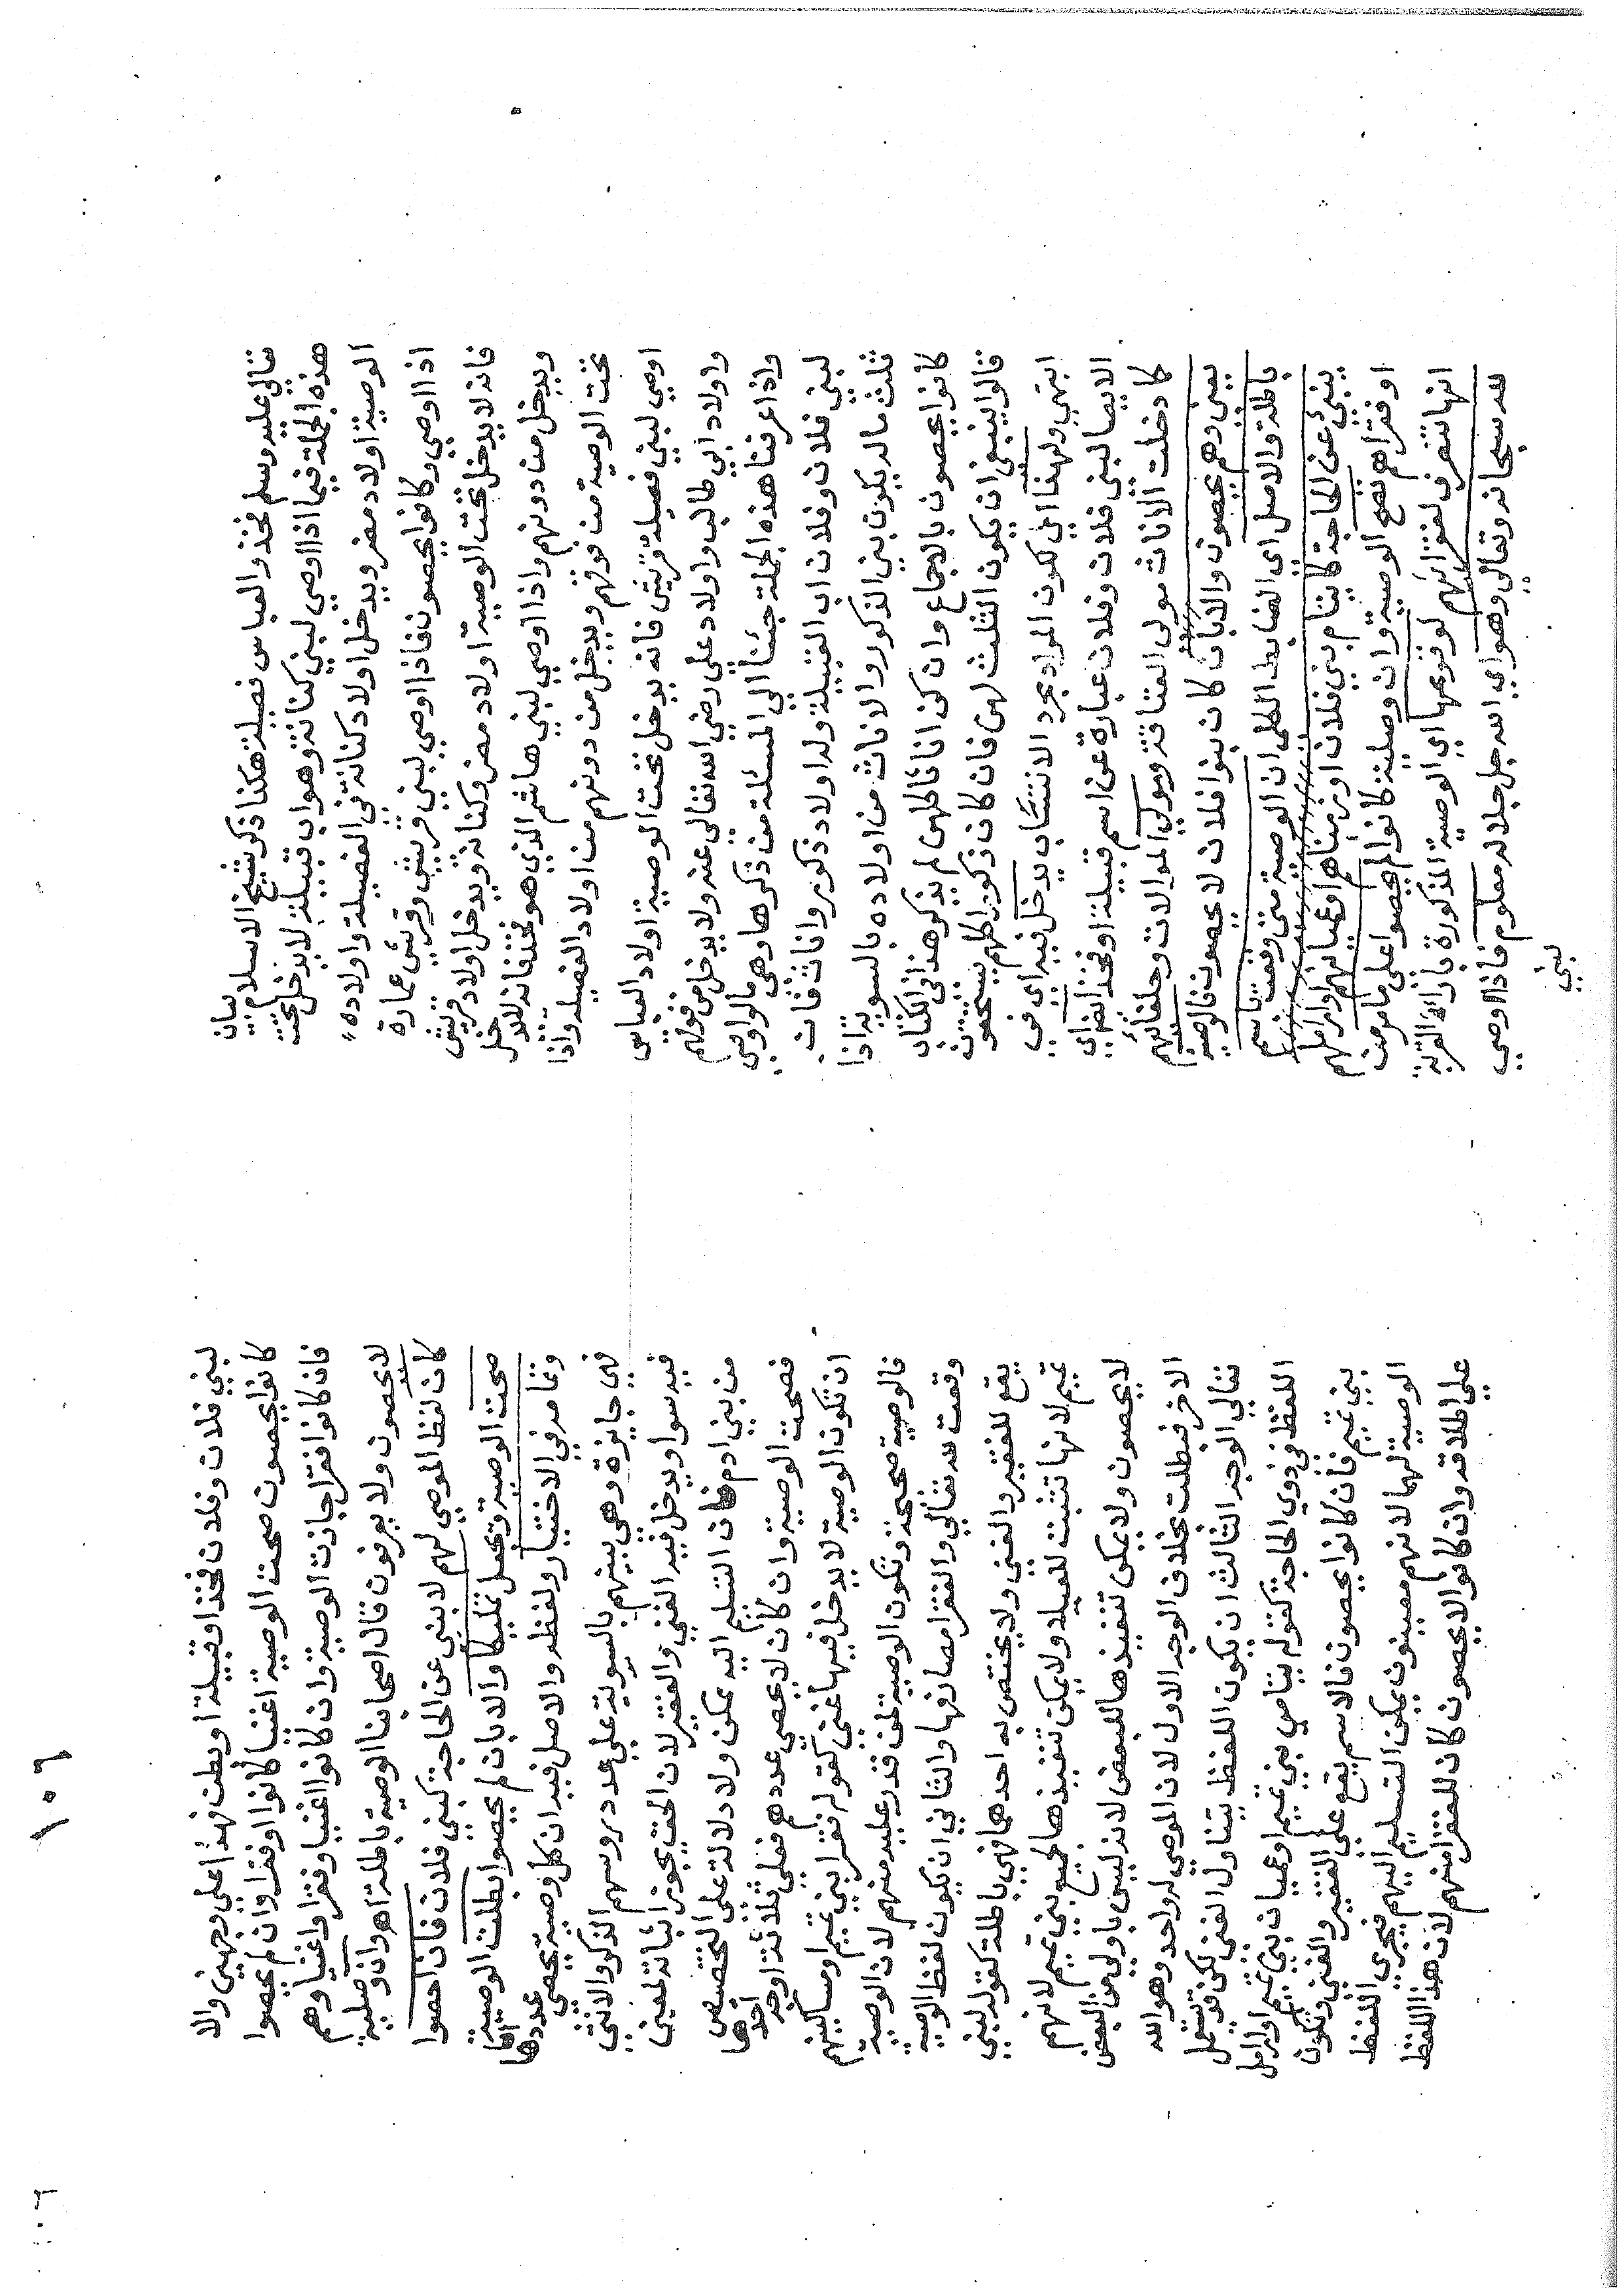 تعالي عليه وسلم فخذ والعباس فصيلة هكذا ذكر شيخ الاسلام بيان
هذه الجملة فيما اذا اوصي لبني كنانة وهو اب قبيلة لا يدخل تحت
الوصية اولاد مضر ويدخل اولاد كنانة في الفصيلة واولاده
اذا اوصي وكانوا يحصون فاذا اوصي لبني قريش وقريش عمارة
فانه لا يدخل تحت الوصية اولاد مضر وكنانة ويدخل اولاد قريش
ويدخل من دونهم واذا اوصي لبني هاشم الذي هو فخذ فانه لا يدخل
تحت الوصية من فوقهم ويدخل من دونهم من اولاد الفصيلة واذا
اوصي لبني فصيلة قريش فانه يدخل تحت الوصية اولاد العباس
واولاد ابي طالب واولاد علي رضي الله تعالي عنه ولا يدخل من فوقهم
واذا عرفنا هذه الجملة جئنا الي المسئلة من ذكرها وهي مالو اوصي
لبني فلان وفلان اب القبيلة وله اولاد ذكور واناث فان
ثلث ماله يكون بين الذكور والاناث من اولاده بالسوية اذا
كانوا يحصون بالاجماع وان كن اناثا كلهن لم يذكر هذا في الكتاب
قالوا ينبغي ان يكون الثلث لهن فان كان ذكورا كلهم يستحقون
انتهي ولهذا اي لكون المراد مجرد الانتساب يدخل فيه اي في
الايصا لبني فلان وفلان عبارة عن اسم قبيلة او فخذ ايضا اي
كما دخلت الاناث مولي العتاقة ومولي الموالات وحلفائهم
يعني وهم يحصون والا بان كان بنوا فلان لا يحصون فالوصية
باطلة والاصل اي الضابط الكلي ان الوصية متي وقعت باسم
ينبئ عن الحاجة كايتام بني فلان او زمناهم او عميانهم او اراملهم
او فقراهم تصح الوصية وان وصلية كانوا لم يحصوا علي ما مر من
انها تصرف لفقرائهم لوقوعها اي الوصية المذكورة بازائه القربة
لله سبحانه وتعالي وهو اي الله جل جلاله معلوم فاذا اوصي
لبني
لبني فلان وفلان فخذ او قبيلة او بطن فهذا علي وجهين والا
كانوا يحصون صحت الوصية اغنيا كانوا او فقرا وان لم يحصوا
فان كانوا فقرا جازت الوصية وان كانوا اغنيا وفقرا واغنيا وهم
لا يحصون ولا يعرفون قال اصحابنا الوصية باطلة اهـ وان وصلية
كان لفظ الموصي لهم لا ينبي عن الحاجة كبني فلان فان احصوا
صحت الوصية وتجعل تمليكا والا بان لم يحصوا بطلت الوصية
وتمامه في الاختيار ولفظه والاصل فيه ان كل وصية يحصي عددها
فهي جايزة وهي بينهم بالسوية علي عدد روسهم الذكر والانثي
فيه سوا ويدخل فيه الغني والفقير لان الحق يجوز اثباته لمعين
من بني ادم فان التسليم اليه ممكن ولا دلالة علي التخصيص
فصحت الوصية وان كان لا يحصي عددهم فعلي ثلاثة اوجه احدها
ان تكون الوصية لا يدخل فيها غني كقوله فقرا بني تميم او مساكينهم
فالوصية صحيحة وتكون الوصية لمن قدر عليه منهم لان الوصية
وقعت لله تعالي والفقرا مصارفها والثاني ان يكون لفظ الوصية
يقع للفقير والغني ولا يختص به احدهما فهي باطلة كقوله لبني
تميم لانها تثبت للعباد ولا يمكن تنفيذها لجميع بني تميم لانهم
لا يحصون ولا يمكن تنفيذها للبعض لانه ليس باولي من البعض
الاخر فبطلت بخلاف الوجه الاول لان الموصي له واحد وهو الله
تعالي الوجه الثالث ان يكون اللفظ يتناول الغني لكن قد يستعمل
اللفظ في ذوي الحاجة كقوله يتامي بني تميم او عميان بني تميم او ارامل
بني تميم فان كانوا يحصون فالاسم يقع علي الفقير والغني وتكون
الوصية لهما لانهم معينون يمكن التسليم اليهم فيجري اللفظ
علي اطلاقه وان كانوا لا يحصون كان للفقرا منهم لان هذا اللفظ
١٠٦